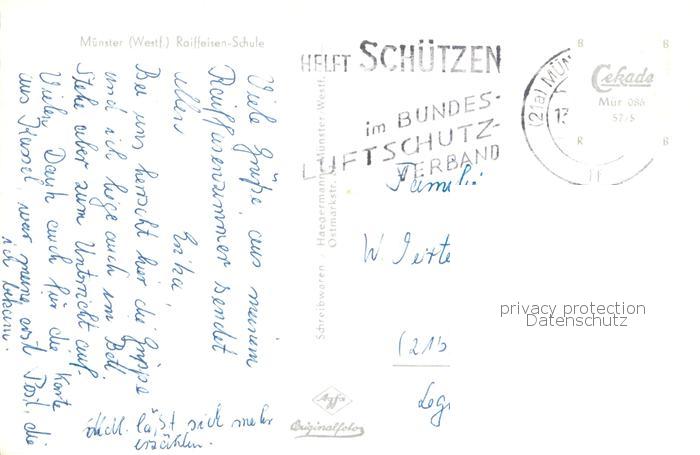 Münster (Westf.) Raiffeisen-Schule
Viele Grüße aus meinem
Raiffeisenzimmer sendet
allen
Erika,
Bei uns herrscht hier die Grippe
und ich liege auch im Bett
stehe aber zum Unterricht auf.
Vielen Dank auch für die Karte
aus Kassel, war meine erst Post, die
ich bekam.
läßt sich mehr
erzählen.
Schreibwaren Haegermann, Münster-Westf.
Ostmarkstr.
HELFT SCHÜTZEN
im BUNDES-
LUFTSCHUTZ-
VERBAND
(21a) MÜN
13
Famili
W.
(21b
Agfa
Originalfoto
B B
Cekade
Mür 086
57/5
R B
privacy protection
Datenschutz